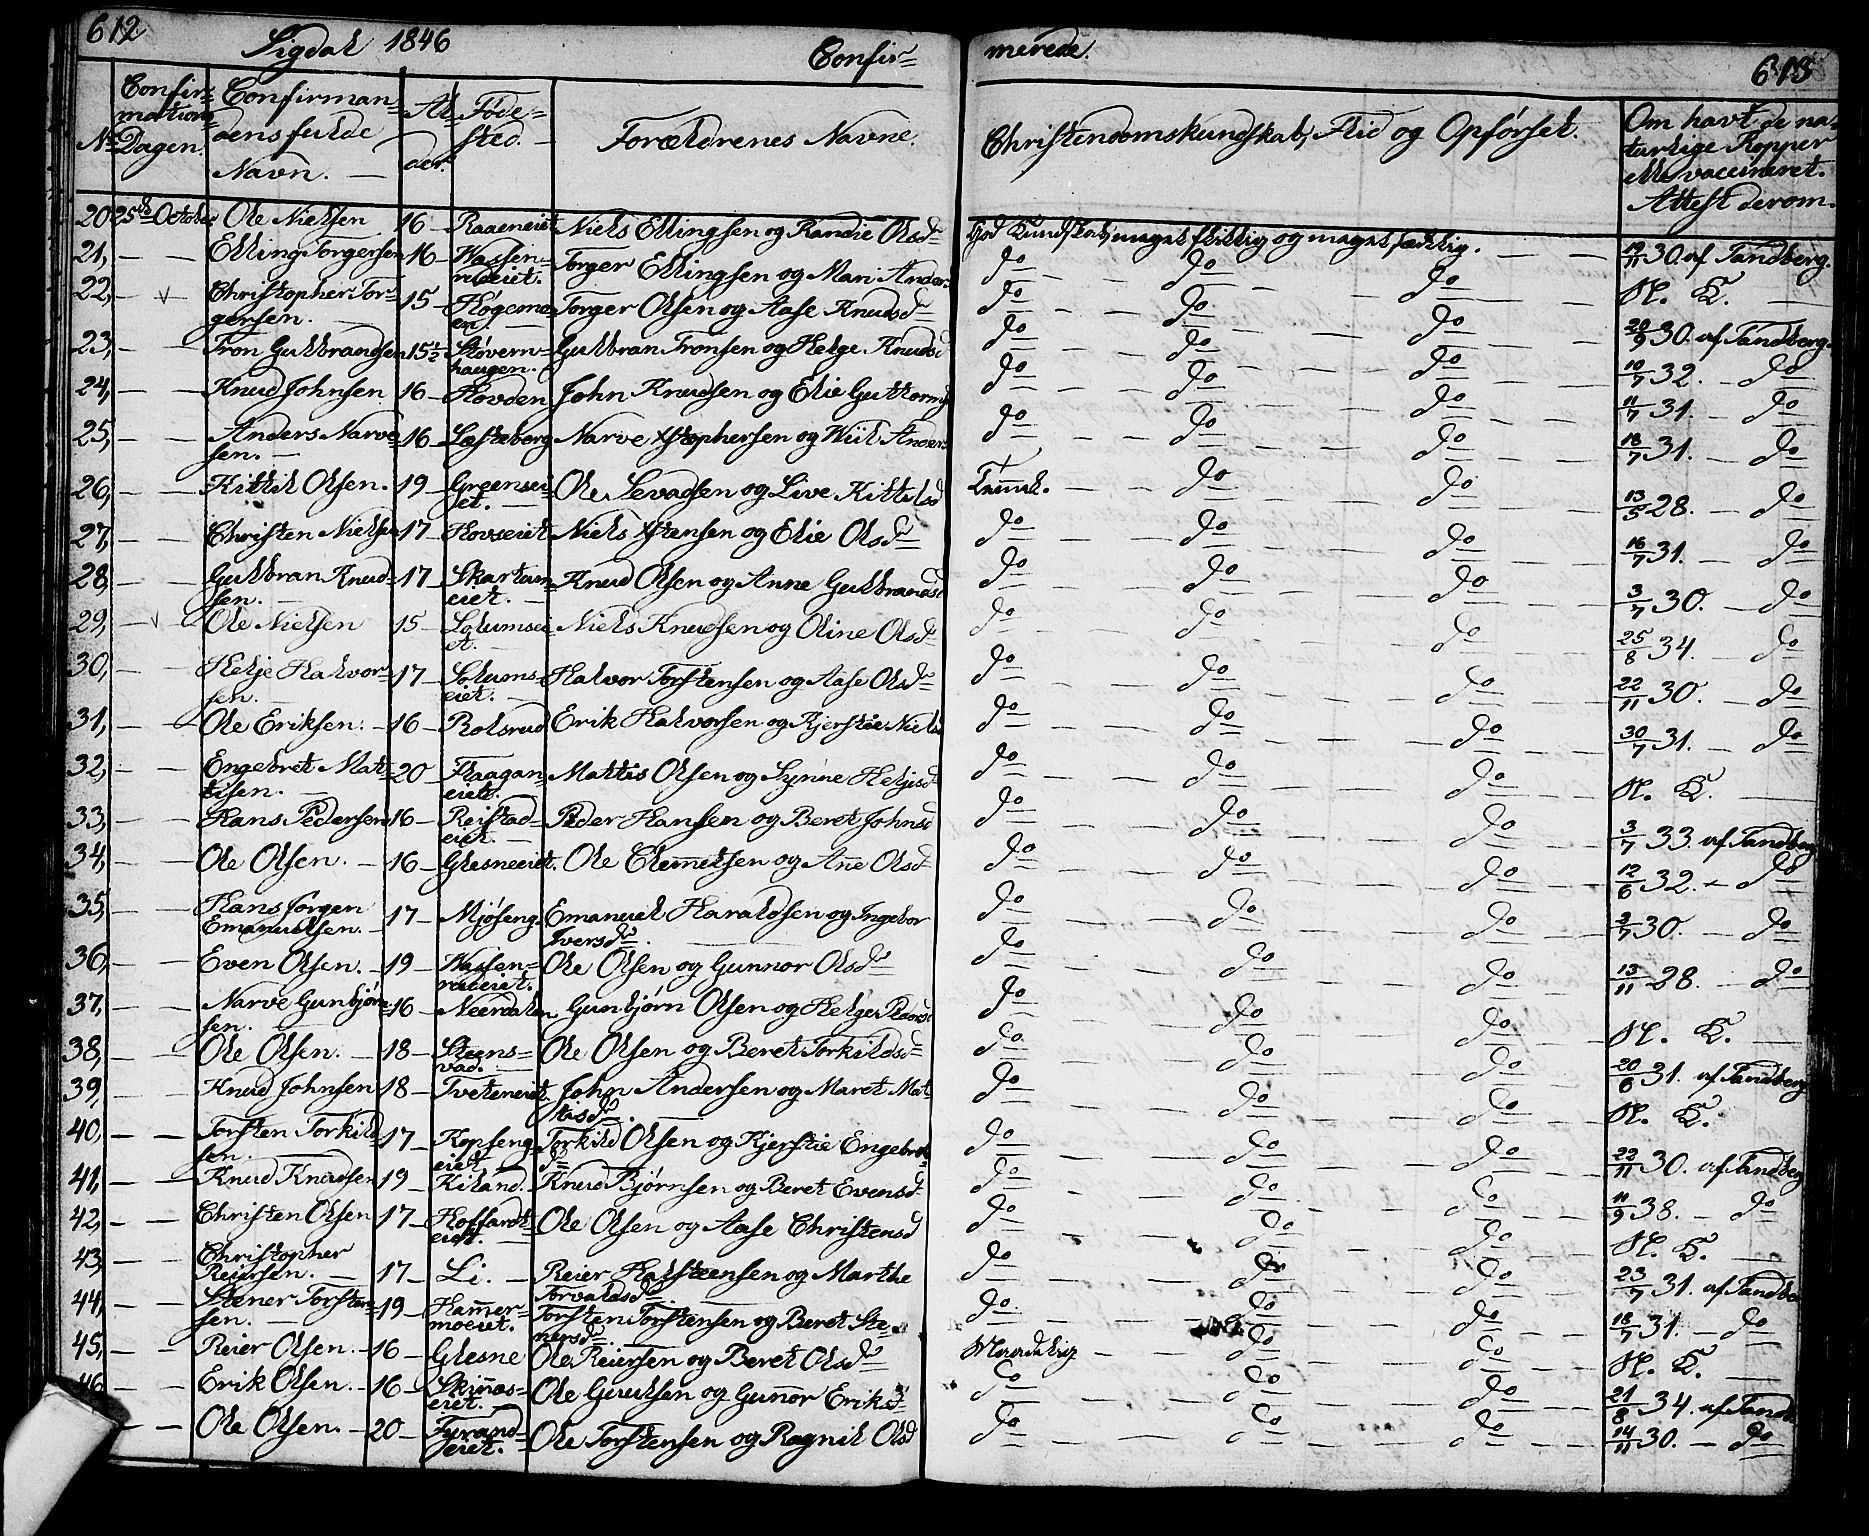 612 Sigdal 1846 Confir=
merede. 613
No Confir=mations Dagen. Confirman=dens fulde Navn. Al=der. Føde=sted. Forældrenes Navne. Christendomskundskab, Flid og Opførsel. Om havt de na=turlige Kopper elle vaccineret. Attest derom.
20 25de October Ole Nielsen 16 Raaeneiet Niels Ellingsen og Randie Olsd God Kundskab, meget flittig og meget sædelig. 19/11 30. af Tandberg.
21, Elling Torgersen 16 Torger Ellingsen og Mari Anders do do do N. K.
22, Christopher Tor=gersen. 15 Torger Olsen og Aase Knudsd do do do 20/9 30. af Tandberg.
23, Tron Gulbrandsen 15½ Støvern=haugen. Gulbran Tronsen og Helge Knudsd do do do 10/7 32. do
24, Knud Johnsen 16 Hovden John Knudsen og Elie Guttorms do do do 11/7 31. do
25, Anders Narve=sen. 16 Narve Xstophersen og Anders do do do 18/7 31. do
26, Kittil Olsen. 19 Ole Sevadsen og Live Kittilsd Temel. do do 13/5 28. do
27, Christen Nielsen 17 Hovseiet Niels Xstensen og Elie Olsd do do do 16/7 31. do
28, Gulbran Knud=sen. 17 Skartum=eiet. Knud Olsen og Anne Gulbrands do do do 3/7 30. do
29, Ole Nielsen 15 Solumsei=et. Niels Knudsen og Oline Olsd do do do 25/8 34. do
30, Helje Halvor=sen. 17 Solums=eiet. Halvor Torstensen og Aase Olsd do do do 22/11 30. do
31, Ole Eriksen. 16 Rolsrud Erik Halvorsen og Kjerstie Niels do do do 30/7 31. do
32, Engebret Mat=tisen. 20 Haagan=eiet. Mattis Olsen og Synne Heljesd do do do N. K.
33, Hans Pedersen 16 Reistad=eiet. Peder Hansen og Beret Johnsd do do do 3/7 33. af Tandberg
34, Ole Olsen. 16 Glesneeiet. Ole Clemetsen og Ane Olsd do do do 12/6 32. do
35, Hans Jørgen Emanuelsen. 17 Mjøseng. Emanuel Haraldsen og Ingebor Iversd do do do 3/7 30. do
36, Even Olsen. 19 Ole Olsen og Gunnor Olsd do do do 13/11 28. do
37, Narve Gunbjørn=sen. 16 Neerdalen Gunbjørn Olsen og Helge do do do N. K.
38, Ole Olsen. 18 Steens=vad. Ole Olsen og Beret Torkildsd do do do 20/6 31. af Tandberg
39, Knud Johnsen 18 Tveteneiet. John Andersen og Maret Mat=tisd do do do N. K.
40, Torsten Torkild=sen. 17 Kopseng=eiet Torkild Olsen og Kjerstie Engebret=sd do do do 22/11 30. af Tandberg
41, Knud Knudsen 19 Kiland. Knud Bjørnsen og Beret Evensd do do do 11/9 38. do
42, Christen Olsen 17 Hoffart=eiet. Ole Olsen og Aase Christensd do do do N. K.
43, Christopher Reiersen. 17 Li. Reier Halsteensen og Marthe Torvaldsd do do do 23/7 31. af Tandbe
44, Stener Torsten=sen. 19 Hammer=moeiet. Torsten Torstensen og Beret Ste=nersd do do do 18/7 31. do
45, Reier Olsen. 16 Glesne Ole Reiersen og Beret Olsd Maadelig do do N. K.
46 Erik Olsen. 16 Skinnes=eiet. Ole Guulsen og Gunor Eriksd do do do 21/8 34. af Tandb
Ole Olsen. 20 Furand=eiet. Ole Torstensen og Ragnil Olsd do do do 14/11 30. do